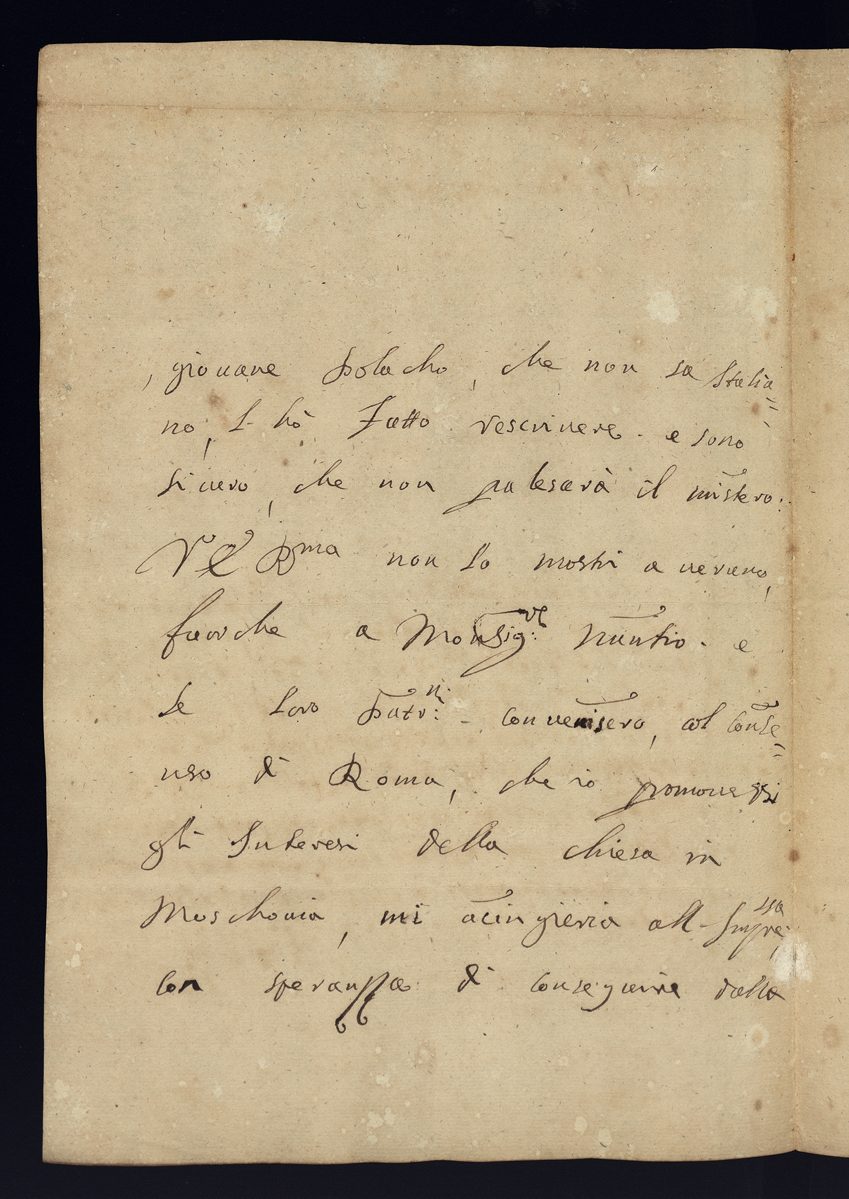 , giovane polacho, che non sa Italia=
no, l'hò fatto rescrivere. e sono
sicuro, che non palesarà il mistero:
V. E. Rma non lo mostri a veruno,
fuorche a Monsig.re Nuntio. e
se loro Patr.ni convenisero, col conse=
nso di Roma, che io promovessi
gli Interesi della chiesa in
Moschovia, mi acingieria all'Impressa,
con speranza di conseguire dalla